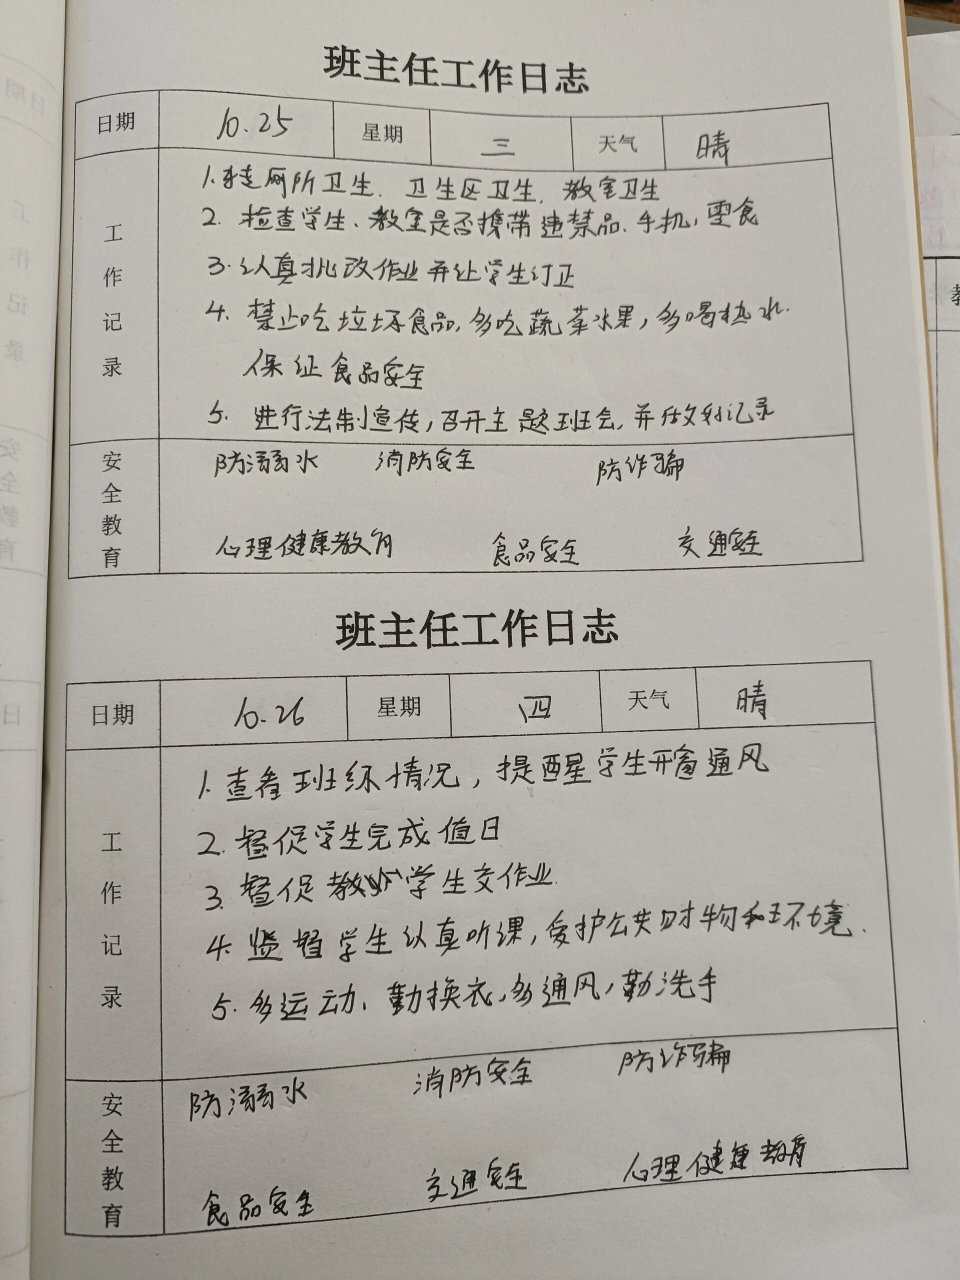 班主任工作日志
日期 10.25 星期 三 天气 晴
工作记录
1.查厕所卫生、卫生区卫生、教室卫生
2.检查学生、教室是否携带违禁品、手机，零食
3.认真批改作业并让学生订正
4.禁止吃垃圾食品，多吃蔬菜水果，多喝热水.
保证食品安全
5.进行法制宣传，召开主题班会，并做好记录
安全教育
防溺水 消防安全 防诈骗
心理健康教育 食品安全 交通安全
班主任工作日志
日期 10.26 星期 四 天气 晴
工作记录
1.查看班级情况，提醒学生开窗通风
2.督促学生完成值日
3.督促学生交作业.
4.监督学生认真听课，爱护公共财物和环境.
5.多运动、勤换衣，多通风，勤洗手
安全教育
防溺水 消防安全 防诈骗
食品安全 交通安全 心理健康教育